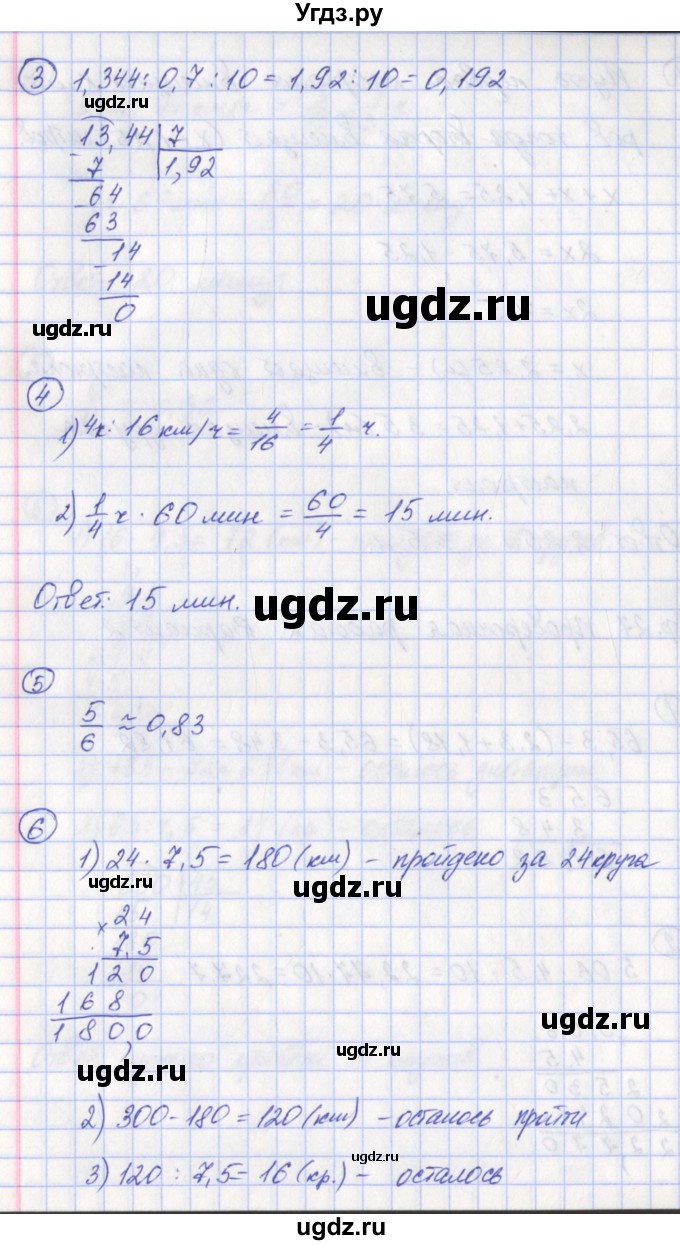 Угдз.ру
③ 1,344 : 0,7 : 10 = 1,92 : 10 = 0,192
13,44 | 7
7 1,92
64
63
14
14
0
ugdz.ru
ugdz.ru
④
1) 4к : 16 км/ч = 4/16 = 1/4 ч.
2) 1/4 ч · 60 мин = 60/4 = 15 мин.
Ответ: 15 мин.
ugdz.ru
ugdz.ru
⑤
5/6 ≈ 0,83
ugdz.ru
⑥
1) 24 · 7,5 = 180 (км) – пройдено за 24 круга
ugdz.ru
ugdz.ru
× 24
7,5
120
168
180,0
ugdz.ru
ugdz.ru
ugdz.ru
2) 300 - 180 = 120 (км) – осталось пройти
3) 120 : 7,5 = 16 (кр.) – осталось
ugdz.ru
ugdz.ru
ugdz.ru